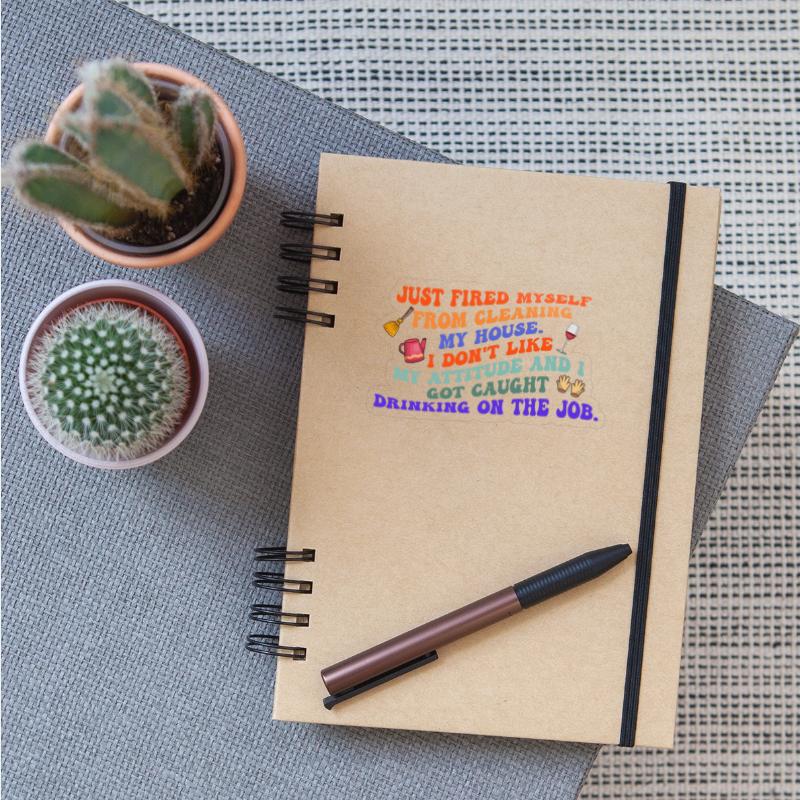 JUST FIRED MYSELF
FROM CLEANING
MY HOUSE.
I DON'T LIKE
MY ATTITUDE AND I
GOT CAUGHT
DRINKING ON THE JOB.